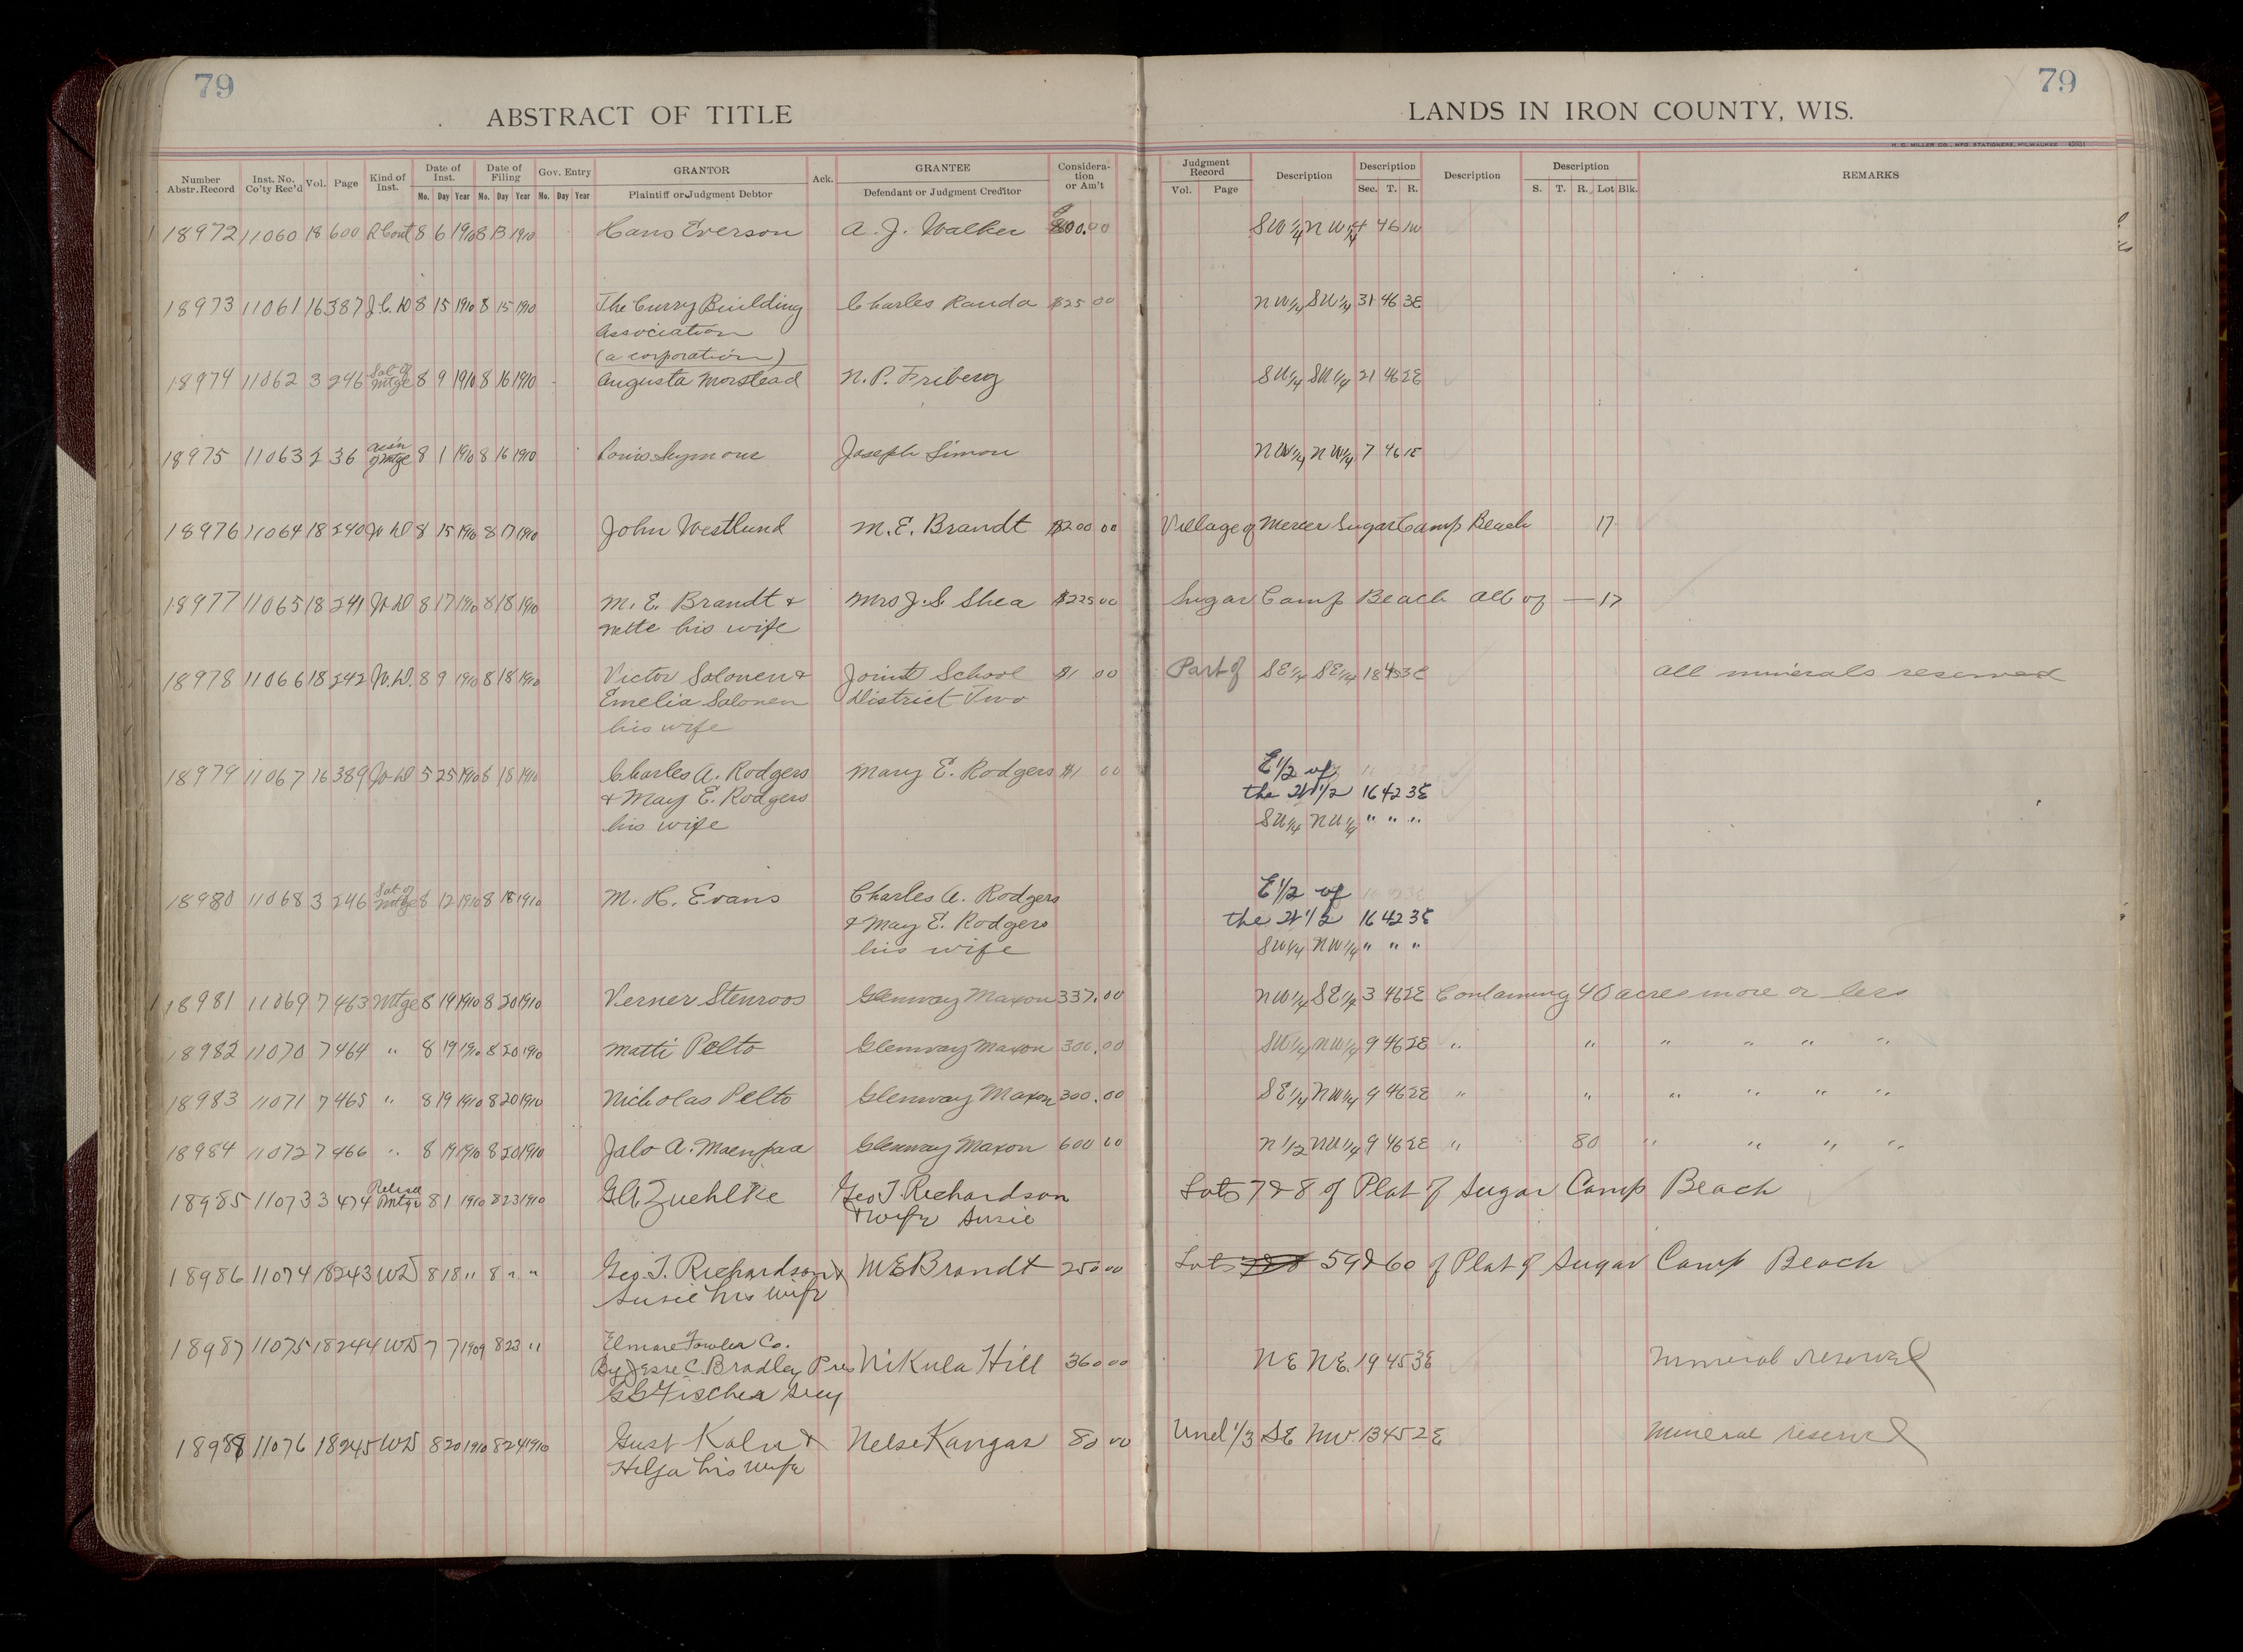 79
79
ABSTRACT OF TITLE
LANDS IN IRON COUNTY, WIS.
H. C. MILLER CO., MFG. STATIONERS, MILWAUKEE
Number Abstr. Record Inst. No. Co'ty Rec'd Vol. Page Kind of Inst. Date of Inst. Mo. Day Year Date of Filing Mo. Day Year Gov. Entry Mo. Day Year GRANTOR Plaintiff or Judgment Debtor Ack. GRANTEE Defendant or Judgment Creditor Considera-tion or Am't Judgment Record Vol. Page Description Description Sec. T. R. Description Description S. T. R. Lot Blk. REMARKS
18972 11060 18 600 8 6 1910 8 13 1910 Hans Everson A. J. Walker 800.00 SW 1/4 NW 1/4 4 46 1W
18973 11061 16 387 8 15 1910 8 15 1910 The Curry Building Charles Randa $25 00 NW 1/4 SW 1/4 31 46 3E
Association
(a corporation)
18974 11062 3 246 Sat of Mtge 8 9 1910 8 16 1910 Augusta Morstead N. P. Friberg SW 1/4 SW 1/4 21 46 2E
18975 11063 2 36 Assn of Mtge 8 1 1910 8 16 1910 Louis Seymour Joseph Simon NW 1/4 NW 1/4 7 46 1E
18976 11064 18 240 W D 8 15 1910 8 17 1910 John Westlund M. E. Brandt $200 00 Village of Mercer Sugar Camp Beach 17
18977 11065 18 241 W D 8 17 1910 8 18 1910 M. E. Brandt & Mrs J. S. Shea $225 00 Sugar Camp Beach All of — 17
Nette his wife
18978 11066 18 242 W. D. 8 9 1910 8 18 1910 Victor Salonen & Joint School $1 00 Part of SE 1/4 SE 1/4 18 45 3E All minerals reserved
Emelia Salonen District Two
his wife
18979 11067 16 389 W D 5 25 1910 8 18 1910 Charles A. Rodgers Mary E. Rodgers $1 00 E 1/2 of
& May E. Rodgers the W 1/2 16 42 3E
his wife SW 1/4 NW 1/4 " " "
18980 11068 3 246 Sat of Mtge 8 12 1910 8 18 1910 M. H. Evans Charles A. Rodgers E 1/2 of
& May E. Rodgers the W 1/2 16 42 3E
his wife SW 1/4 NW 1/4 " " "
18981 11069 7 463 Mtge 8 19 1910 8 20 1910 Verner Stenroos Glenway Maxon 337.00 NW 1/4 SE 1/4 3 46 2E Containing 40 acres more or less
18982 11070 7 464 " 8 19 1910 8 20 1910 Matti Pelto Glenway Maxon 300.00 SW 1/4 NW 1/4 9 46 2E " " " " " "
18983 11071 7 465 " 8 19 1910 8 20 1910 Nicholas Pelto Glenway Maxon 300.00 SE 1/4 NW 1/4 9 46 2E " " " " " "
18984 11072 7 466 " 8 19 1910 8 20 1910 Jalo A. Maenpaa Glenway Maxon 600 00 N 1/2 NW 1/4 9 46 2E " 80 " " " "
18985 11073 3 474 Mtge 8 1 1910 8 23 1910 G A Zuehlke Geo T. Richardson Lots 7 & 8 of Plat of Sugar Camp Beach
& wife Susie
18986 11074 18 243 WD 8 18 " 8 " " Geo. T. Richardson & M E Brandt 250 00 Lots 59 & 60 of Plat of Sugar Camp Beach
Susie his wife
18987 11075 18 244 WD 7 7 1909 8 23 " Elmore Fowler Co.
By Jesse C. Bradley Pres Nikula Hill 360 00 NE NE. 19 45 3E Mineral reserved
Fischer Secy
18988 11076 18 245 WD 8 20 1910 8 24 1910 Gust Kalu & Nelse Kangas 80 00 Und 1/3 SE NW. 13 45 2E Mineral reserved
Hilja his wife